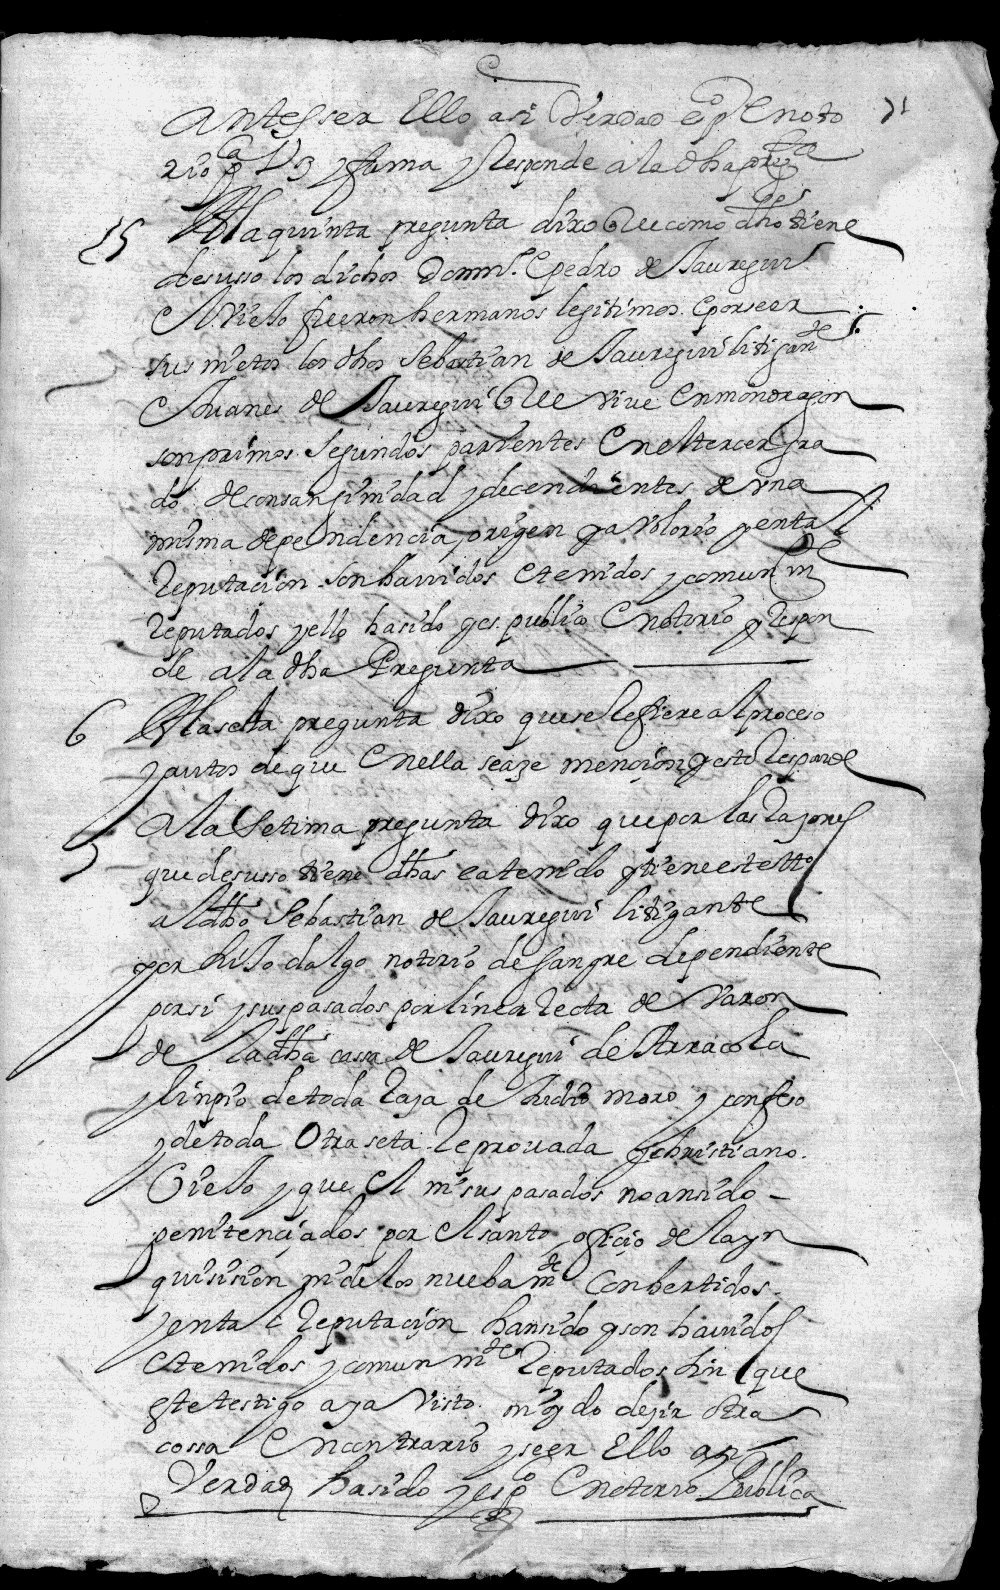 antes ser Ello asi Verdad e pu Enoto
rio pca V3 y fama y Responde a la dha pregta
71
15 A la quinta pregunta dixo Que como dho tiene
de susso los dichos Domingo E pedro de Jauregui
El Viejo fueron hermanos legitimos. E por seer
sus nietos los dhos Sebastian de Jauregui litigante
E Juanes de Jauregui Que vive En mondragon
son primos Segundos parientes En el tercer gra
do de consanginidad y decendientes de una
misma dependencia, origen y abolorio y en tal
Reputacion son havidos E tenidos y comunmte
Reputados y ello ha sido y es publico E notorio y Respon
de a la dha Pregunta
6 A la sesta pregunta dixo que se Refiere al proceso
y autos de que En ella se aze mencion y esto Responde
7 A la Setima pregunta dixo que por las Razones
que de susso tiene dhas ea tenido y tiene este tto
al dho Sebastian de Jauregui litigante
por hijo dalgo notorio de sangre dependiente
por si y sus pasados por linea Recta de Varon
de la dha cassa de Jauregui de Arracola
y linpio de toda Raza de Judio moro y confeso
y de toda Otra seta Reprovada y christiano
Viejo y que El ni sus pasados no an sido
penitenciados por El santo oficio de la yn
quisision ni de los nuebamte Conbertidos
y en tal Reputacion han sido y son havidos
E tenidos y comunmte Reputados sin que
este testigo aya Visto ni oydo dezir otra
cossa En contrario y seer Ello asi
Verdad ha sido y es po E notorio Publica